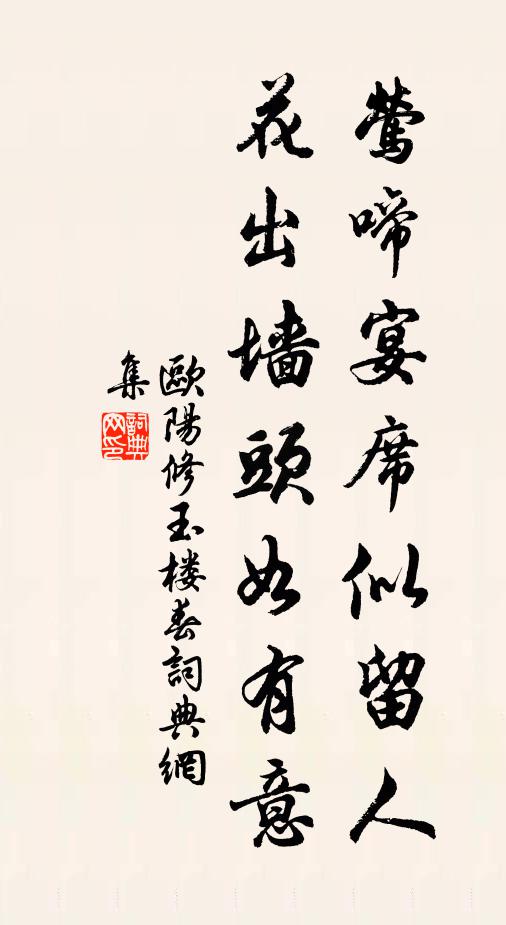 鶯啼宴席似留人
花出墙頭如有意
歐陽修玉楼春詞典網
集
詞典網印